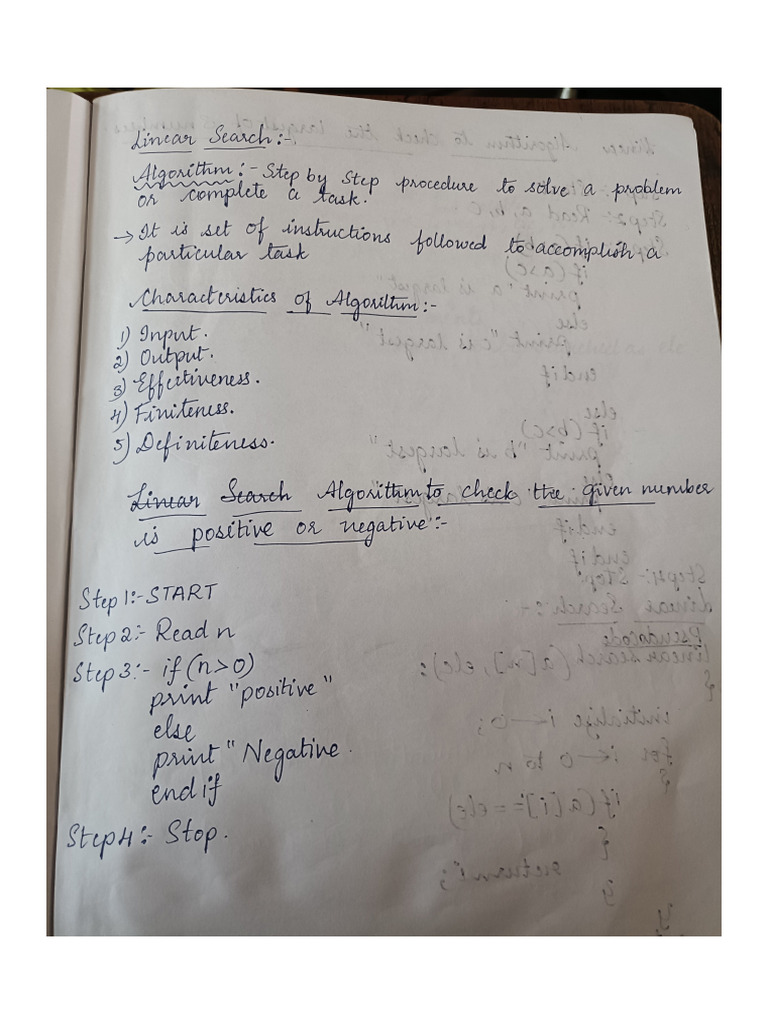 Linear Search:-
Algorithm:- Step by Step procedure to solve a problem
or complete a task.
→ It is set of instructions followed to accomplish a
particular task
Characteristics of Algorithm:-
1) Input.
2) Output.
3) Effectiveness.
4) Finiteness.
5) Definiteness.
Linear Search Algorithm to check the given number
is positive or negative:-
Step 1:- START
Step 2:- Read n
Step 3:- if (n>0)
print "positive"
else
print "Negative.
endif
Step 4:- Stop.